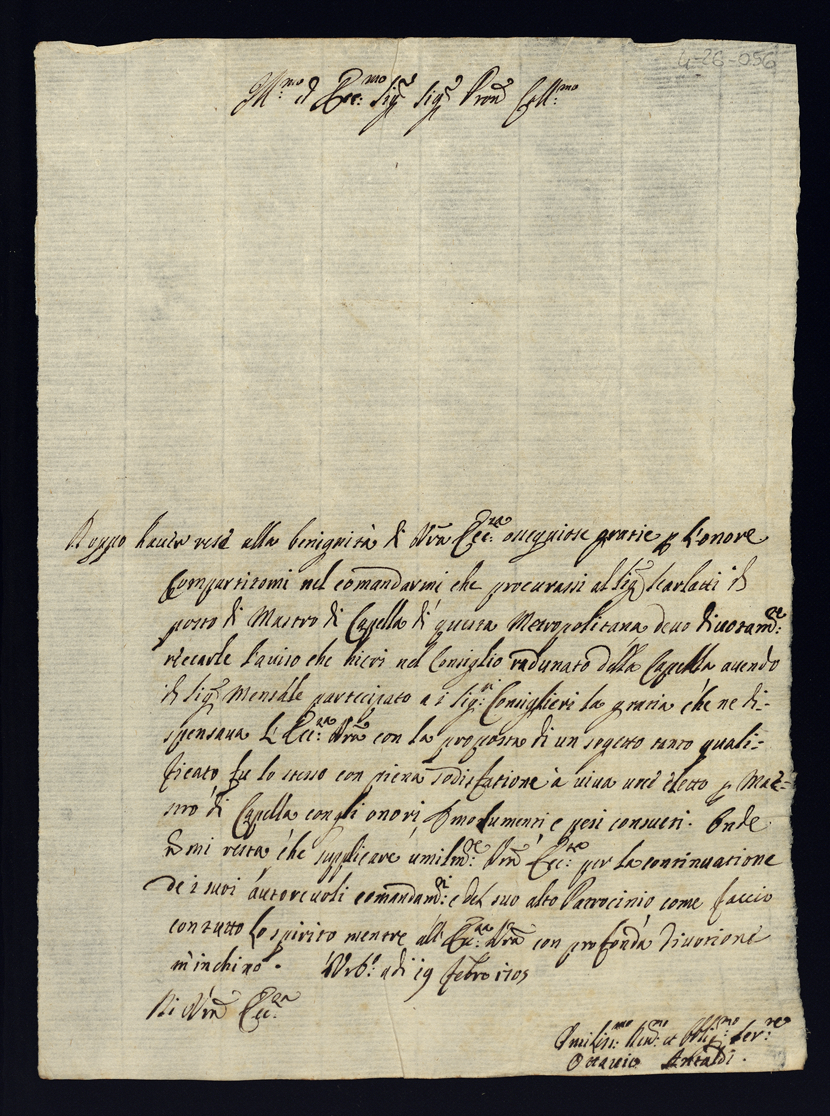 4-26-056
Ill:mo et Ecc:mo Sig.re Sig.re Pron Coll:mo
Doppo haver resi alla benignità di Vra Ecc:za ossequiose gratie p l'onore
compartitomi nel comandarmi che procurassi al Sig.re Scarlatti il
posto di Mastro di Capella di questa Metropolitana devo divotam:te
recarle l'aviso che hieri nel Consiglio radunato della Capella avendo
il Sig.re participato a i Sig:ri Consiglieri la gratia che ne di-
spensava l'Ecc:za Vra con la proposta di un sogetto tanto quali-
ficato, fu lo stesso con piena sodisfatione à viva voce eletto p Mae-
stro di Capella con gli onori, emolumenti e pesi consueti. Onde
mi resta che supplicare umilm:te Vra Ecc:za per la continuatione
de i suoi autorevoli comandam:ti e del suo alto Patrocinio come faccio
con tutto lo spirito mentre all'Ecc:za Vra con profonda divotione
m'inchino. Urb:o adi 19 Febro 1705
Di Vra Ecc:za
Umiliss:mo et Obl:mo Ser:re
Ottavio Antaldi.